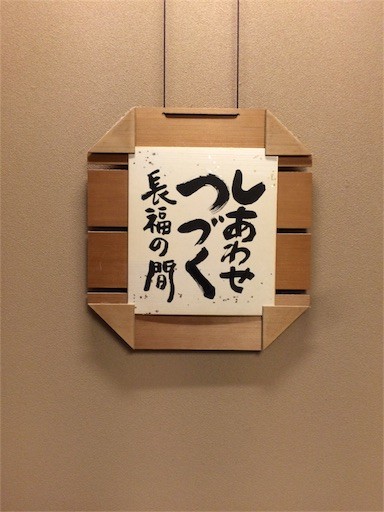 しあわせ
つづく
長福の間